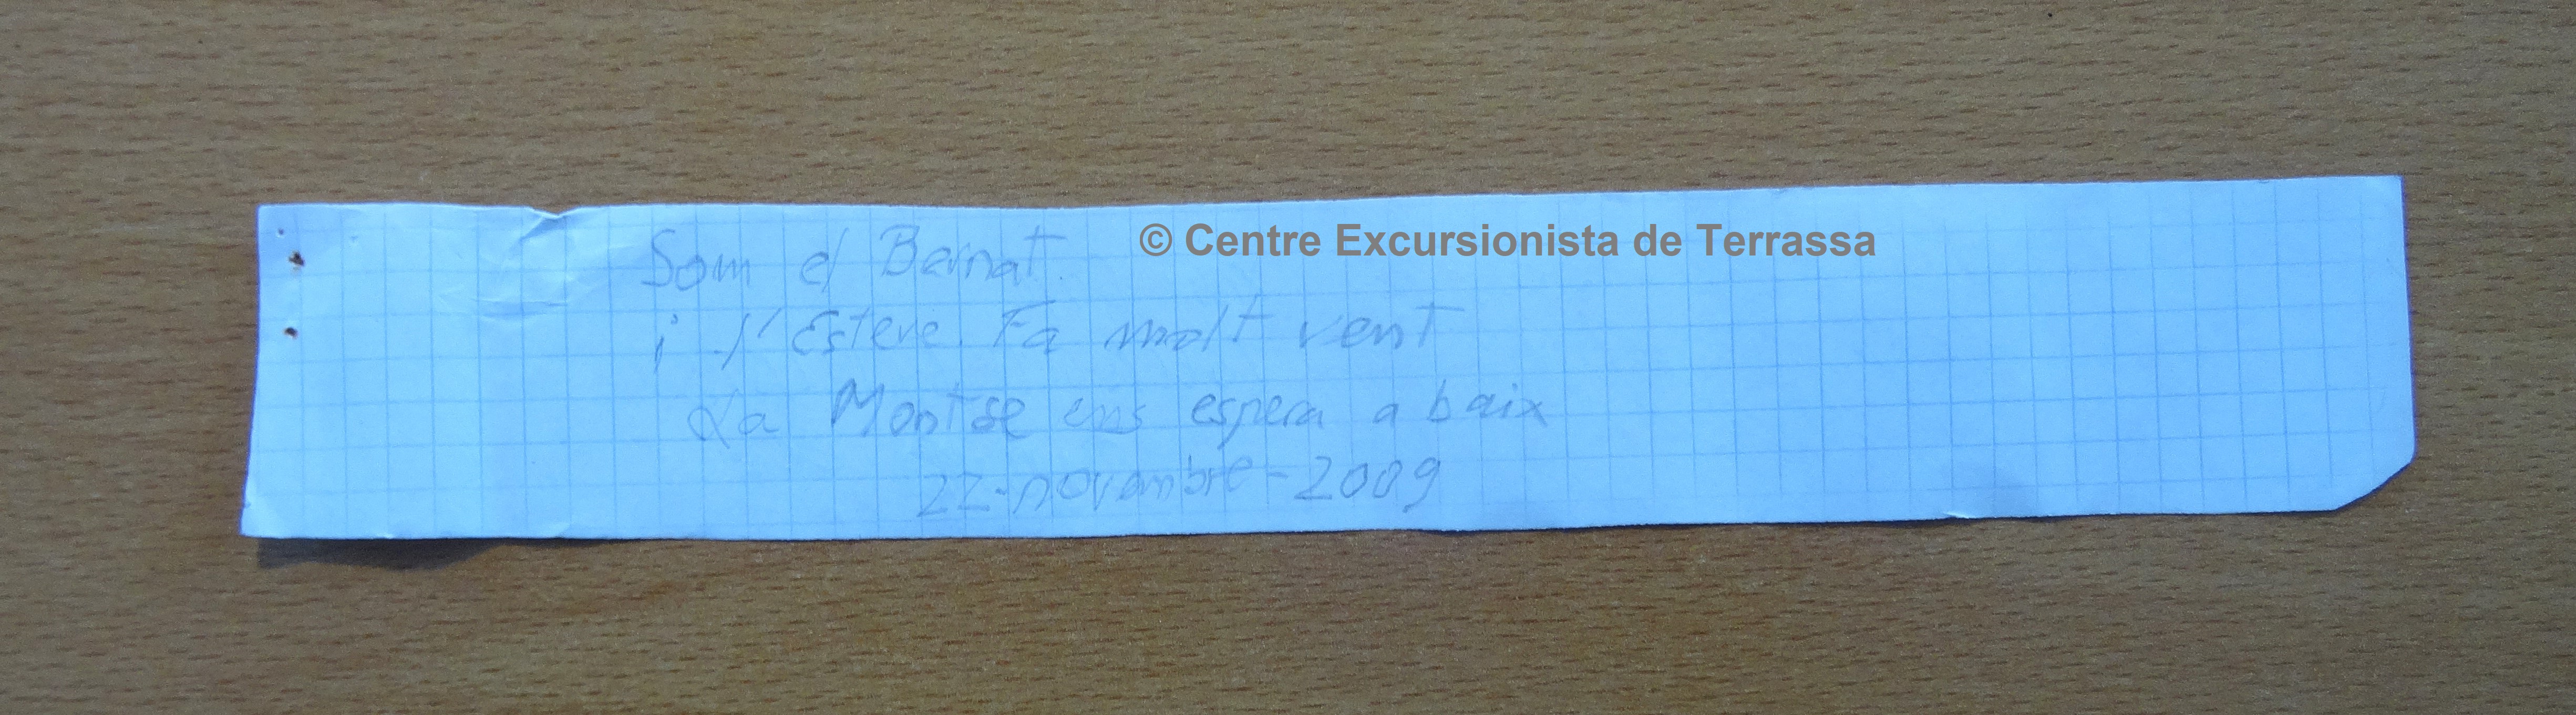 Som el Bernat.
© Centre Excursionista de Terrassa
i l'Esteve. Fa molt vent
La Montse ens espera a baix
22-novembre-2009